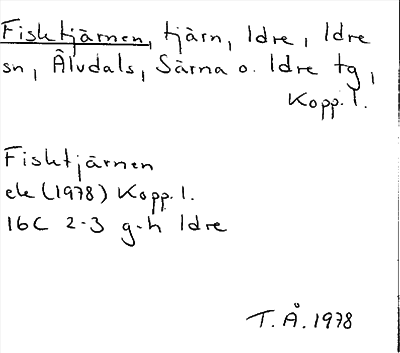 Fisktjärnen, tjärn, Idre, Idre
sn, Älvdals, Särna o. Idre tg,
Kopp. l.
Fisktjärnen
ek (1978) Kopp. l.
16C 2-3 g-h Idre
T. Å. 1978